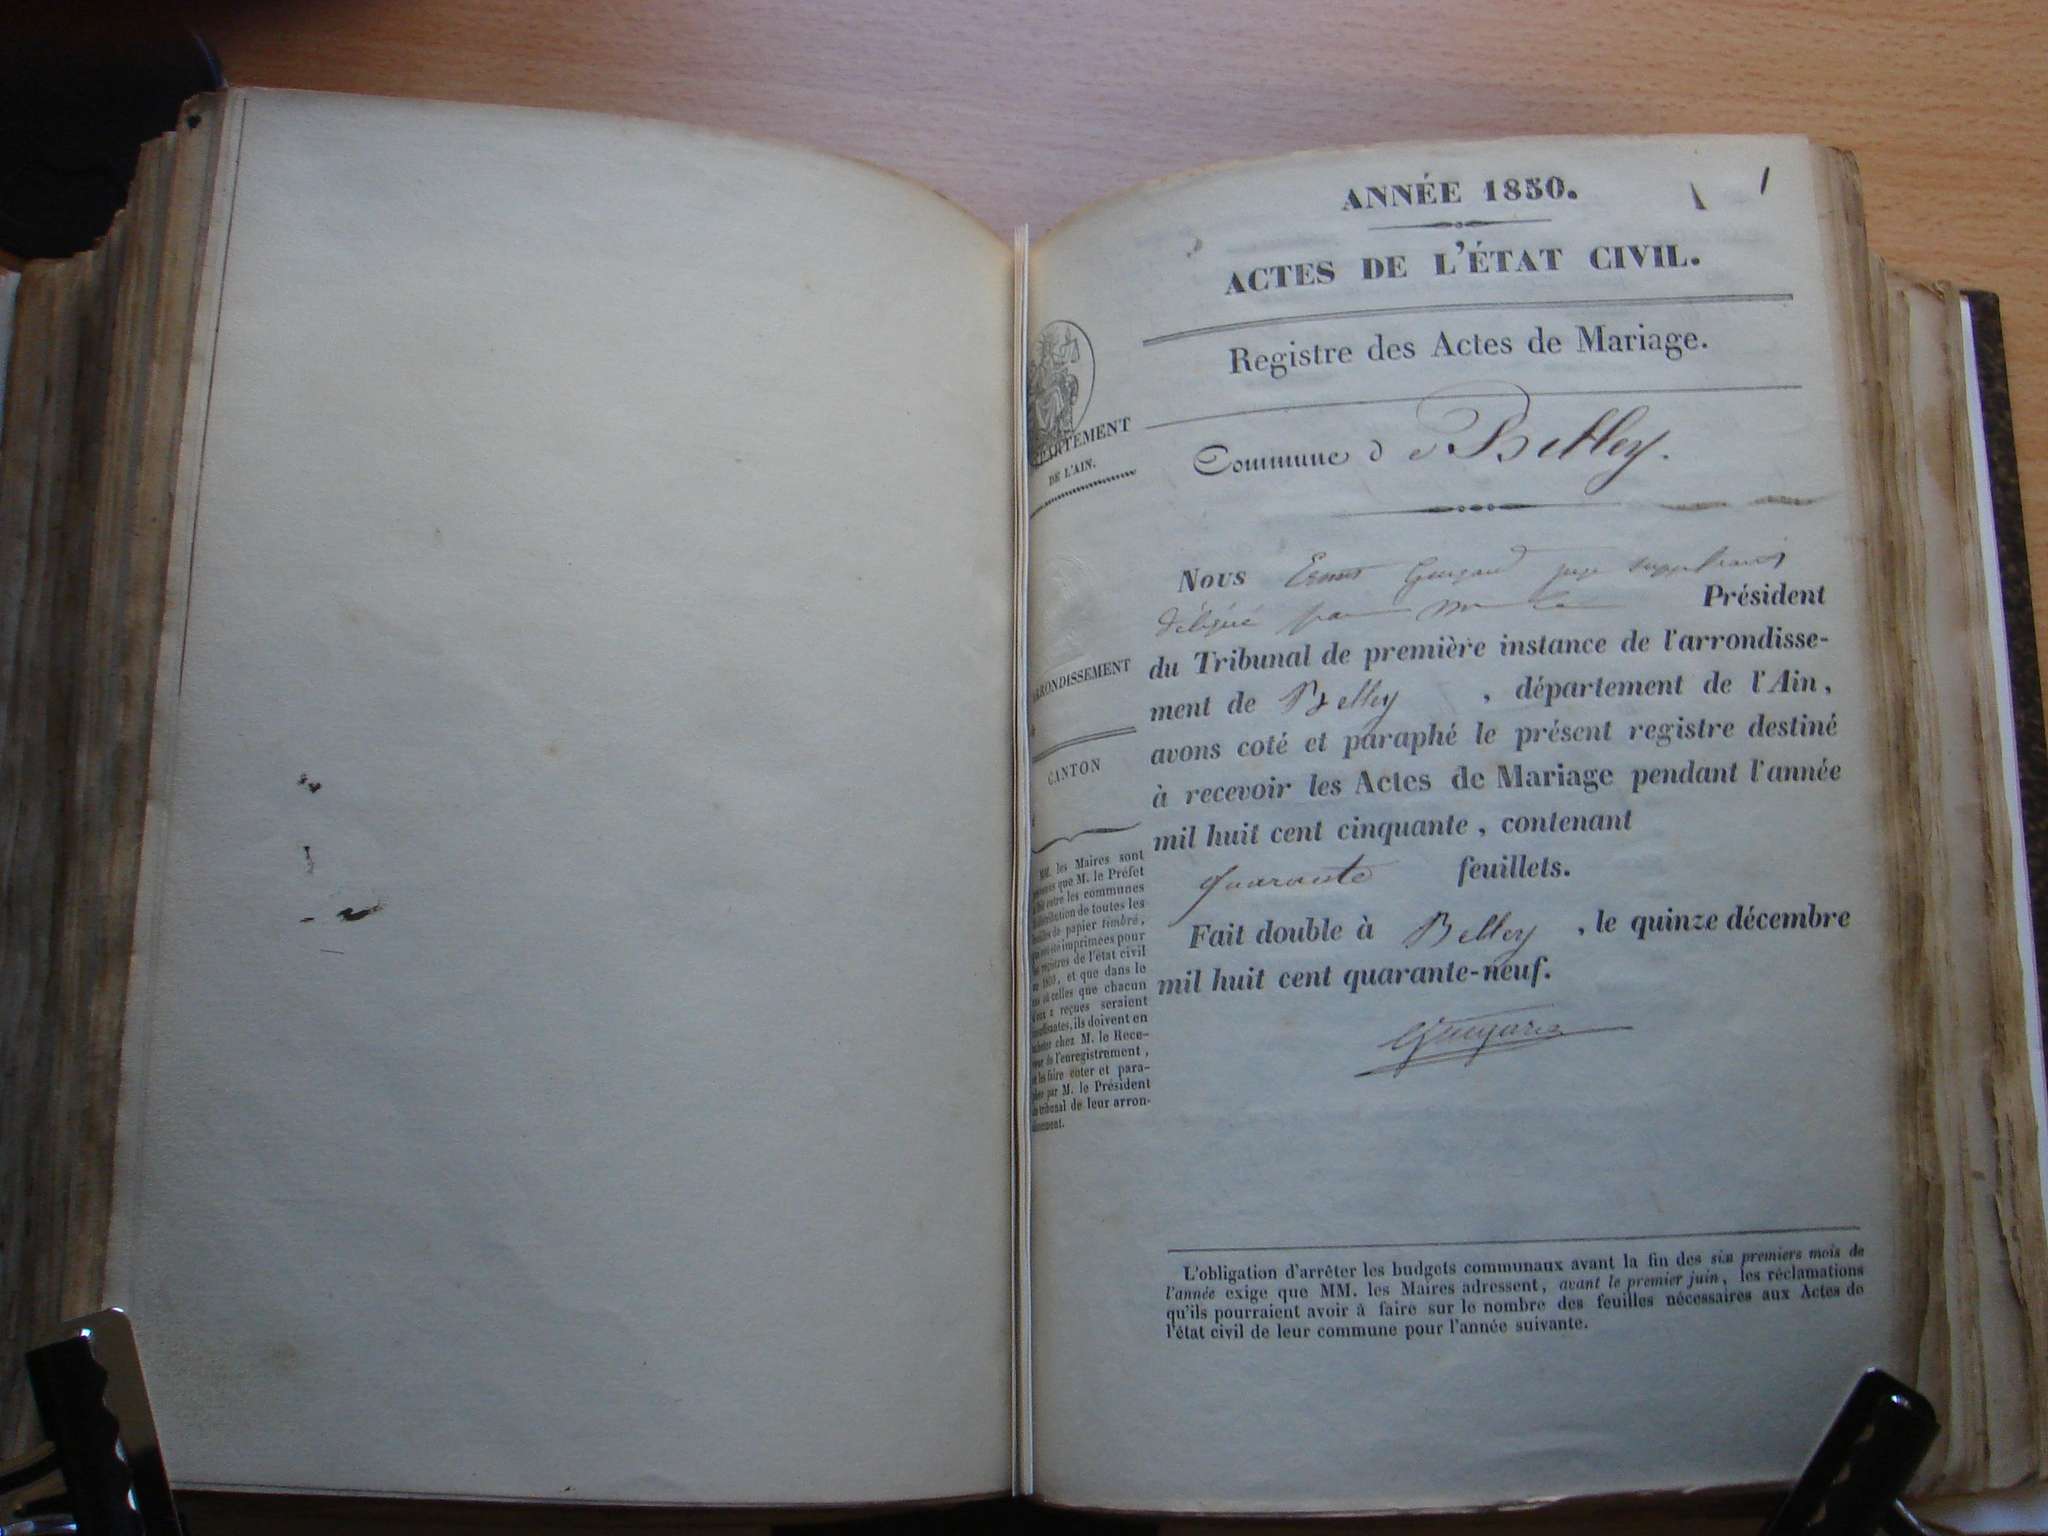 1
ANNÉE 1850.
ACTES DE L'ÉTAT CIVIL.
Registre des Actes de Mariage.
DE L'AIN.
Commune de Belley.
Nous juge suppléant
délégué par Mr le Président
du Tribunal de première instance de l'arrondisse-
ment de Belley, département de l'Ain,
avons coté et paraphé le présent registre destiné
à recevoir les Actes de Mariage pendant l'année
mil huit cent cinquante, contenant
quarante feuillets.
Fait double à Belley, le quinze décembre
mil huit cent quarante-neuf.
CANTON
MM. les Maires sont
que M. le Préfet
entre les communes
de toutes les
de papier timbré,
imprimées pour
de l'état civil
et que dans le
celles que chacun
reçues seraient
ils doivent en
chez M. le Rece-
de l'enregistrement,
les faire coter et para-
par M. le Président
tribunal de leur arron-
L'obligation d'arrêter les budgets communaux avant la fin des six premiers mois de
l'année exige que MM. les Maires adressent, avant le premier juin, les réclamations
qu'ils pourraient avoir à faire sur le nombre des feuilles nécessaires aux Actes de
l'état civil de leur commune pour l'année suivante.